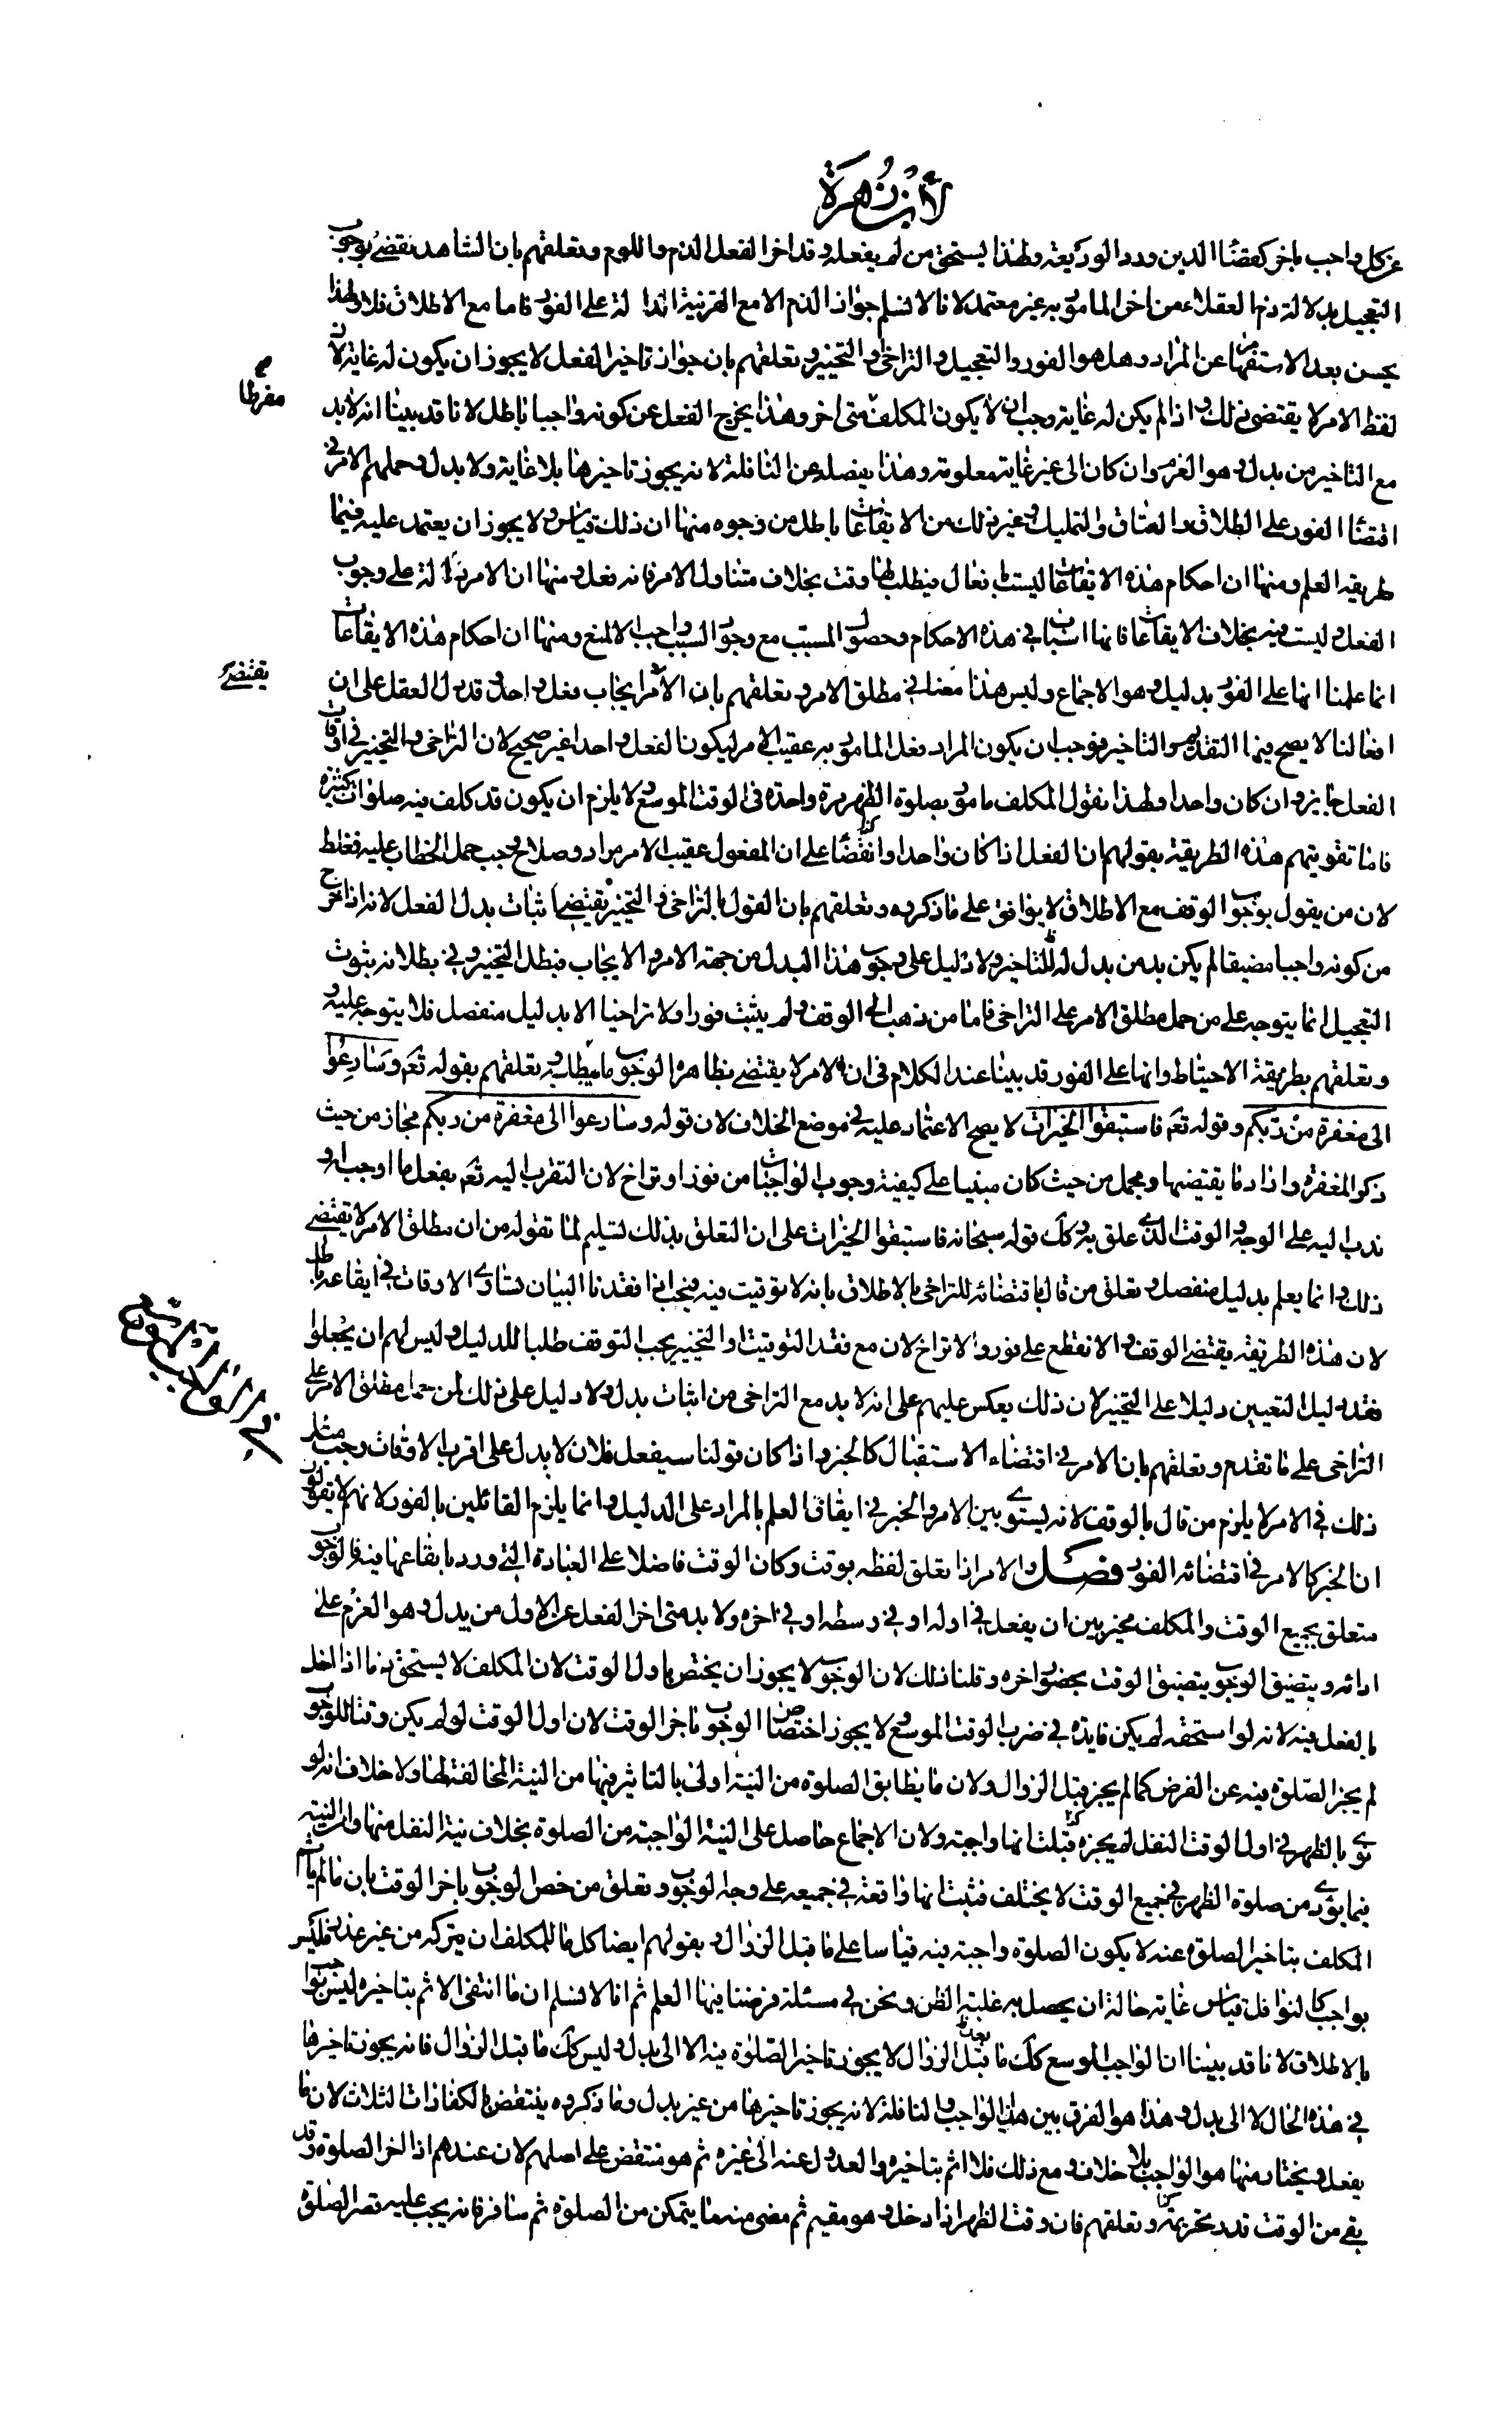 لابن زهرة
عن كل واجب باخر كقضاء الدين ورد الوديعة ولهذا يستحق من لم يفعله وقد اخر الفعل الذم واللوم وتعلقهم بان الشاهد يقضى بوجوب
التعجيل بدلالة ذم العقلاء من اخر المامور به غير معتمد لانا لا نسلم جواز الذم الا مع القرينة الدالة على الفور فاما مع الاطلاق فلا ولهذا
يحسن بعد الاستفهام عن المراد وهل هو الفور والتعجيل والتراخى والتخيير وتعلقهم بان جواز تاخير الفعل لا يجوز ان يكون له غاية لان
مفرطا
لفظ الامر لا يقتضى ذلك واذا لم يكن له غاية وجب ان لا يكون المكلف متى اخر وهذا يخرج الفعل عن كونه واجبا باطل لانا قد بينا انه لا بد
مع التاخير من بدل وهو العزم وان كان الى غير غاية معلومة وهذا يفصله عن النافلة لانه يجوز تاخيرها بلا غاية ولا بدل وحملهم الامر فى
اقتضاء الفور على الطلاق والعتاق والتمليك وغير ذلك من الايقاعات باطل من وجوه منها ان ذلك قياس ولا يجوز ان يعتمد عليه فيما
طريقه العلم ومنها ان احكام هذه الايقاعات ليست بافعال فيطلب لها وقت بخلاف متناول الامر فانه فعل ومنها ان الامر دلالة على وجوب
الفعل وليست فيه بخلاف الايقاعات فانها اسباب فى هذه الاحكام وحصول المسبب مع وجود السبب واجب الا لمنع ومنها ان احكام هذه الايقاعات
يقتضى
انما علمنا انها على الفور بدليل وهو الاجماع وليس هذا معنا فى مطلق الامر وتعلقهم بان الامر ايجاب فعل واحد وقد دل العقل على ان
افعالنا لا يصح فيها التقديم والتاخير فوجب ان يكون المراد فعل المامور به عقيب الامر ليكون الفعل واحدا غير صحيح لان التراخى والتخيير فى اوقات
الفعل جايز وان كان واحدا ولهذا نقول المكلف مامور بصلوة الظهر مرة واحدة فى الوقت الموسع ولا يلزم ان يكون قد كلف فيه صلوات كثيرة
فاما تقويتهم هذه الطريقة بقولهم ان الفعل اذا كان واحدا واتفقنا على ان المفعول عقيب الامر مراد وصلاح وجب حمل الخطاب عليه فغلط
لان من يقول بوجوب الوقف مع الاطلاق لا يوافق على ما ذكروه وتعلقهم بان القول بالتراخى والتخيير يقتضى اثبات بدل الفعل لانه اذا خرج
من كونه واجبا مضيقا لم يكن بد من بدل له للتاخير ولا دليل على وجوب هذا البدل من جهة الامر والايجاب فبطل التخيير وفى بطلانه ثبوت
التعجيل انما يتوجه على من حمل مطلق الامر على التراخى فاما من ذهب الى الوقف ولم يثبت فورا ولا تراخيا الا بدليل منفصل فلا يتوجه عليه
وتعلقهم بطريقة الاحتياط وانها على الفور قد بينا عند الكلام فى ان الامر لا يقتضى بظاهره الوجوب وتعلقهم بقوله تعم وسارعوا
الى مغفرة من ربكم وقوله تعم فاستبقوا الخيرات لا يصح الاعتماد عليه فى موضع الخلاف لان قوله وسارعوا الى مغفرة من ربكم مجاز من حيث
ذكر المغفرة واراد ما يقتضيها ومجمل من حيث كان مبنيا على كيفية وجوب الواجبات من فور او تراخ لان التقرب اليه تعم بفعل ما اوجبه او
ندب اليه على الوجه والوقت الذى علق به وكك قوله سبحانه فاستبقوا الخيرات على ان التعلق بذلك تسليم لما نقوله من ان مطلق الامر لا يقتضى
ذلك وانما يعلم بدليل منفصل وتعلق من قال باقتضائه للتراخى بالاطلاق بانه لا توقيت فيه فيجب اذا فقدنا البيان تساوى الاوقات فى ايقاعه باطل
لان هذه الطريقة يقتضى الوقف والا نقطع على فور ولا تراخ لان مع فقد التوقيت والتخيير يجب التوقف طلبا للدليل وليس لهم ان يجعلوا
فقد دليل التعيين دليلا على التخيير لان ذلك يعكس عليهم على انه لا بد مع التراخى من اثبات بدل ولا دليل على ذلك لمن حمل مطلق الامر على
التراخى على ما تقدم وتعلقهم بان الامر فى اقتضاء الاستقبال كالخبر واذا كان قولنا سيفعل فلان لا يدل على اقرب الاوقات وجب مثل
ذلك فى الامر لا يلزم من قال بالوقف لانه يستوى بين الامر والخبر فى ايقاف العلم بالمراد على الدليل وانما يلزم القائلين بالفور لانهم لا يقولون
ان الخبر كالامر فى اقتضائه الفور فصل والامر اذا تعلق لفظه بوقت وكان الوقت فاضلا على العبادة التى ورد بايقاعها فيه فالوجوب
متعلق بجميع الوقت والمكلف مخير بين ان يفعل فى اوله او فى وسطه او فى اخره ولا بد متى اخر الفعل عن الاول من بدل وهو العزم على
ادائه ويتضيق الوجوب بتضيق الوقت بحضور اخره وقلنا ذلك لان الوجوب لا يجوز ان يختص باول الوقت لان المكلف لا يستحق ذما اذا اخل
بالفعل فيه لانه لو استحقه لم يكن فايدة فى ضرب الوقت الموسع ولا يجوز اختصاص الوجوب باخر الوقت لان اول الوقت لو لم يكن وقتا للوجوب
لم يجز الصلوة فيه عن الفرض كما لم يجز قبل الزوال ولان ما يطابق الصلوة من النية اولى بالتاثير فيها من النية المخالفة لها ولا خلاف انه لو
نوى بالظهر فى اول الوقت النفل لم يجزه فثبت انها واجبة ولان الاجماع حاصل على النية الواجبة من الصلوة بخلاف نية النفل منها وان النية
فيما يؤدى من صلوة الظهر فى جميع الوقت لا يختلف فثبت انها واقعة فى جميعه على وجه الوجوب وتعلق من خص الوجوب باخر الوقت بان ما لم ياثم
المكلف بتاخير الصلوة عنه لا يكون الصلوة واجبة فيه قياسا على ما قبل الزوال وبقولهم ايضا كل ما للمكلف ان يتركه من غير عذر فليس
بواجب كالنوافل قياس غاية حاله ان يحصل به غلبة الظن ونحن فى مسئلة فرضنا فيها العلم ثم انا لا نسلم ان ما انتفى الاثم بتاخيره ليس بواجب
بالاطلاق لانا قد بينا ان الواجب الموسع كك وما بعد الزوال لا يجوز تاخير الصلوة فيه الا الى بدل وليس كك ما قبل الزوال فانه يجوز تاخيرها
فى هذه الحال لا الى بدل وهذا هو الفرق بين هذا الواجب والنافلة لانه يجوز تاخيرها من غير بدل وما ذكروه ينتقض بالكفارات الثلاث لان ما
يفعل ويختار منها هو الواجب بلا خلاف ومع ذلك فلا اثم بتاخيره والعدول عنه الى غيره ثم هو منتقض على اصلهم لان عندهم اذا اخر الصلوة وقد
بقى من الوقت قدر تحريمة وتعلقهم فان وقت الظهر اذا دخل وهو مقيم ثم مضى منه ما يتمكن من الصلوة ثم سافر فانه يجب عليه قصر الصلوة